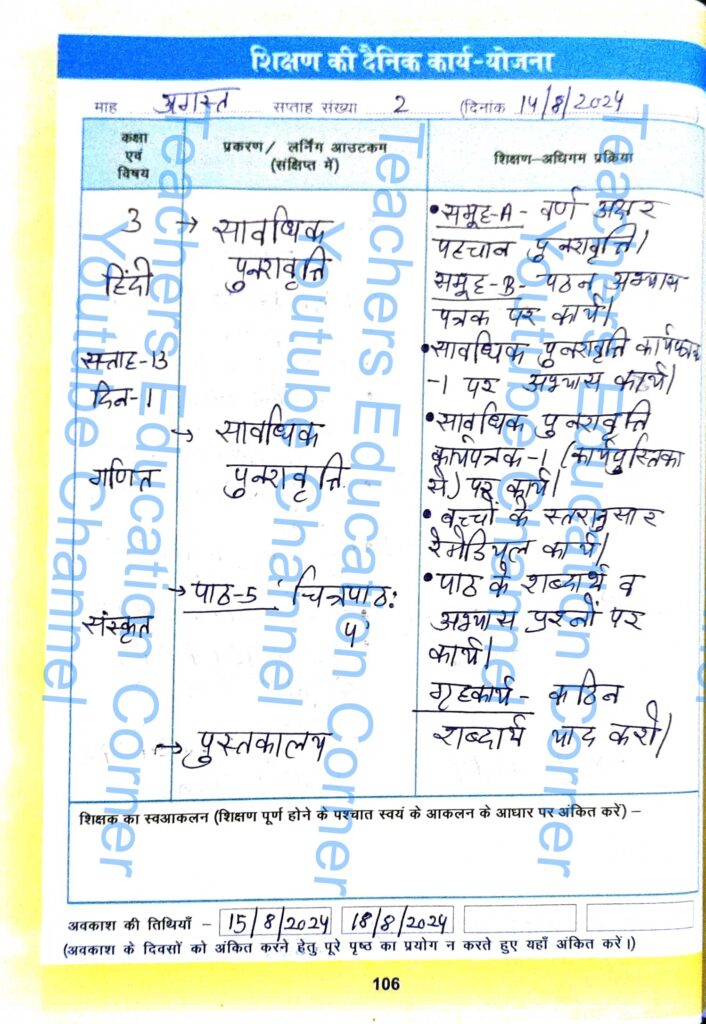 शिक्षण की दैनिक कार्य-योजना
माह अगस्त सप्ताह संख्या 2 (दिनांक 14/8/2024
कक्षा
एवं
विषय
प्रकरण/ लर्निंग आउटकम
(संक्षिप्त में)
शिक्षण-अधिगम प्रक्रिया
3 → सावधिक
पुनरावृत्ति
हिंदी
• समूह-A - वर्ण अक्षर
पहचान पुनरावृत्ति।
समूह-B- पठन अभ्यास
पत्रक पर कार्य।
सप्ताह-13
दिन-1
• सावधिक पुनरावृत्ति कार्यपत्रक
-1 पर अभ्यास कार्य।
→ सावधिक
गणित पुनरावृत्ति
• सावधिक पुनरावृत्ति
कार्यपत्रक-1 (कार्यपुस्तिका
से) पर कार्य।
• बच्चों के स्तरानुसार
रेमेडियल कार्य।
→ पाठ-5 'चित्रपाठ:
5'
संस्कृत
• पाठ के शब्दार्थ व
अभ्यास प्रश्नों पर
कार्य।
गृहकार्य - कठिन
शब्दार्थ याद करो।
→ पुस्तकालय
शिक्षक का स्वआकलन (शिक्षण पूर्ण होने के पश्चात स्वयं के आकलन के आधार पर अंकित करें) –
अवकाश की तिथियाँ – 15/8/2024 18/8/2024
(अवकाश के दिवसों को अंकित करने हेतु पूरे पृष्ठ का प्रयोग न करते हुए यहाँ अंकित करें।)
106
Teachers Education Corner
Youtube Channel
Teachers Education Corner
Youtube Channel
Teachers Education Corner
Youtube Channel